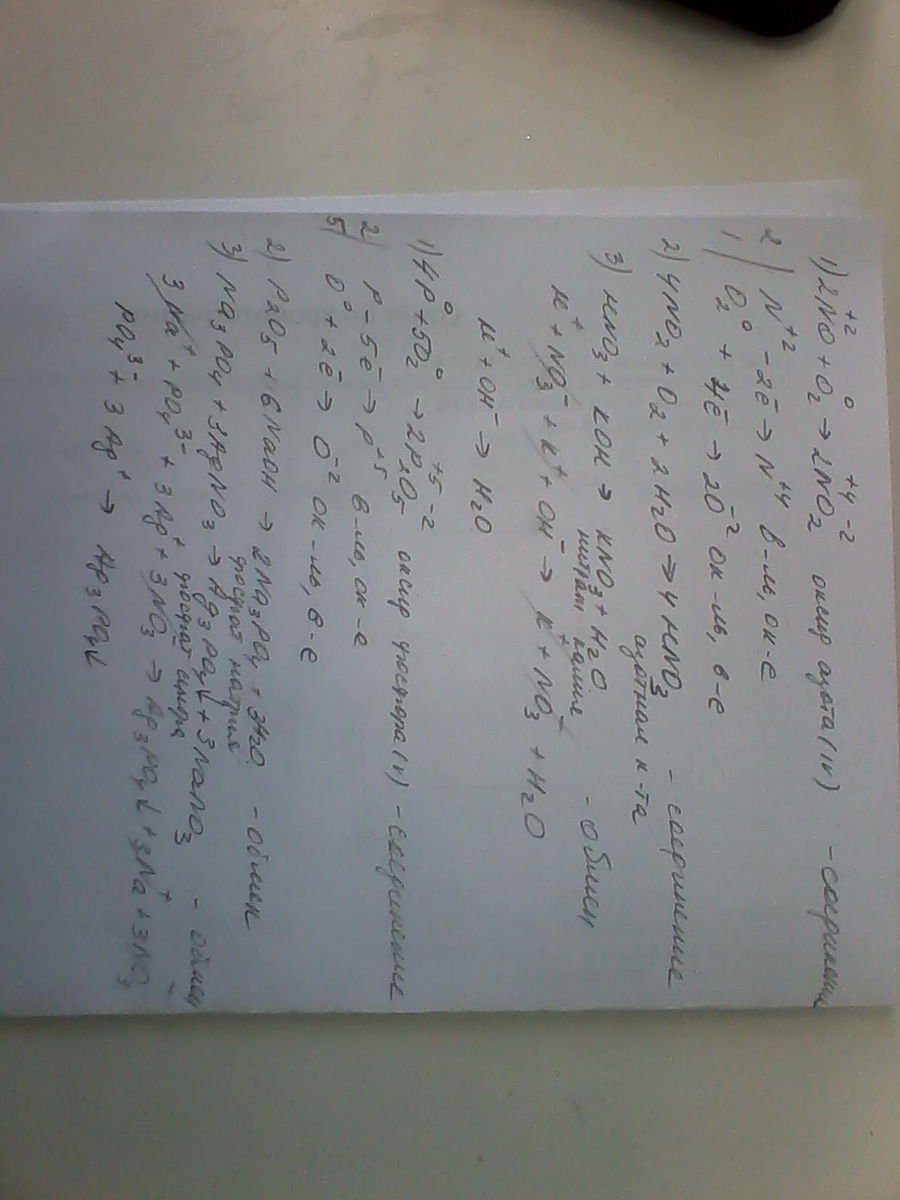 1) 2NO + O₂ → 2NO₂ оксид азота (IV) - соединение
+2 0 +4 -2
2 | N⁺² - 2ē → N⁺⁴ в-ль, ок-е
1 | O₂⁰ + 4ē → 2O⁻² ок-ль, в-е
2) 4NO₂ + O₂ + 2H₂O → 4HNO₃ - соединение
азотная к-та
3) HNO₃ + KOH → KNO₃ + H₂O - обмен
нитрат калия
H⁺ + NO₃⁻ + K⁺ + OH⁻ → K⁺ + NO₃⁻ + H₂O
H⁺ + OH⁻ → H₂O
1) 4P⁰ + 5O₂⁰ → 2P₂⁺⁵O₅⁻² оксид фосфора (V) - соединение
2 | P - 5ē → P⁺⁵ в-ль, ок-е
5 | O⁰ + 2ē → O⁻² ок-ль, в-е
2) P₂O₅ + 6NaOH → 2Na₃PO₄ + 3H₂O - обмен
фосфат натрия
3) Na₃PO₄ + 3AgNO₃ → Ag₃PO₄↓ + 3NaNO₃ - обмен
фосфат серебра
3Na⁺ + PO₄³⁻ + 3Ag⁺ + 3NO₃⁻ → Ag₃PO₄↓ + 3Na⁺ + 3NO₃⁻
PO₄³⁻ + 3Ag⁺ → Ag₃PO₄↓